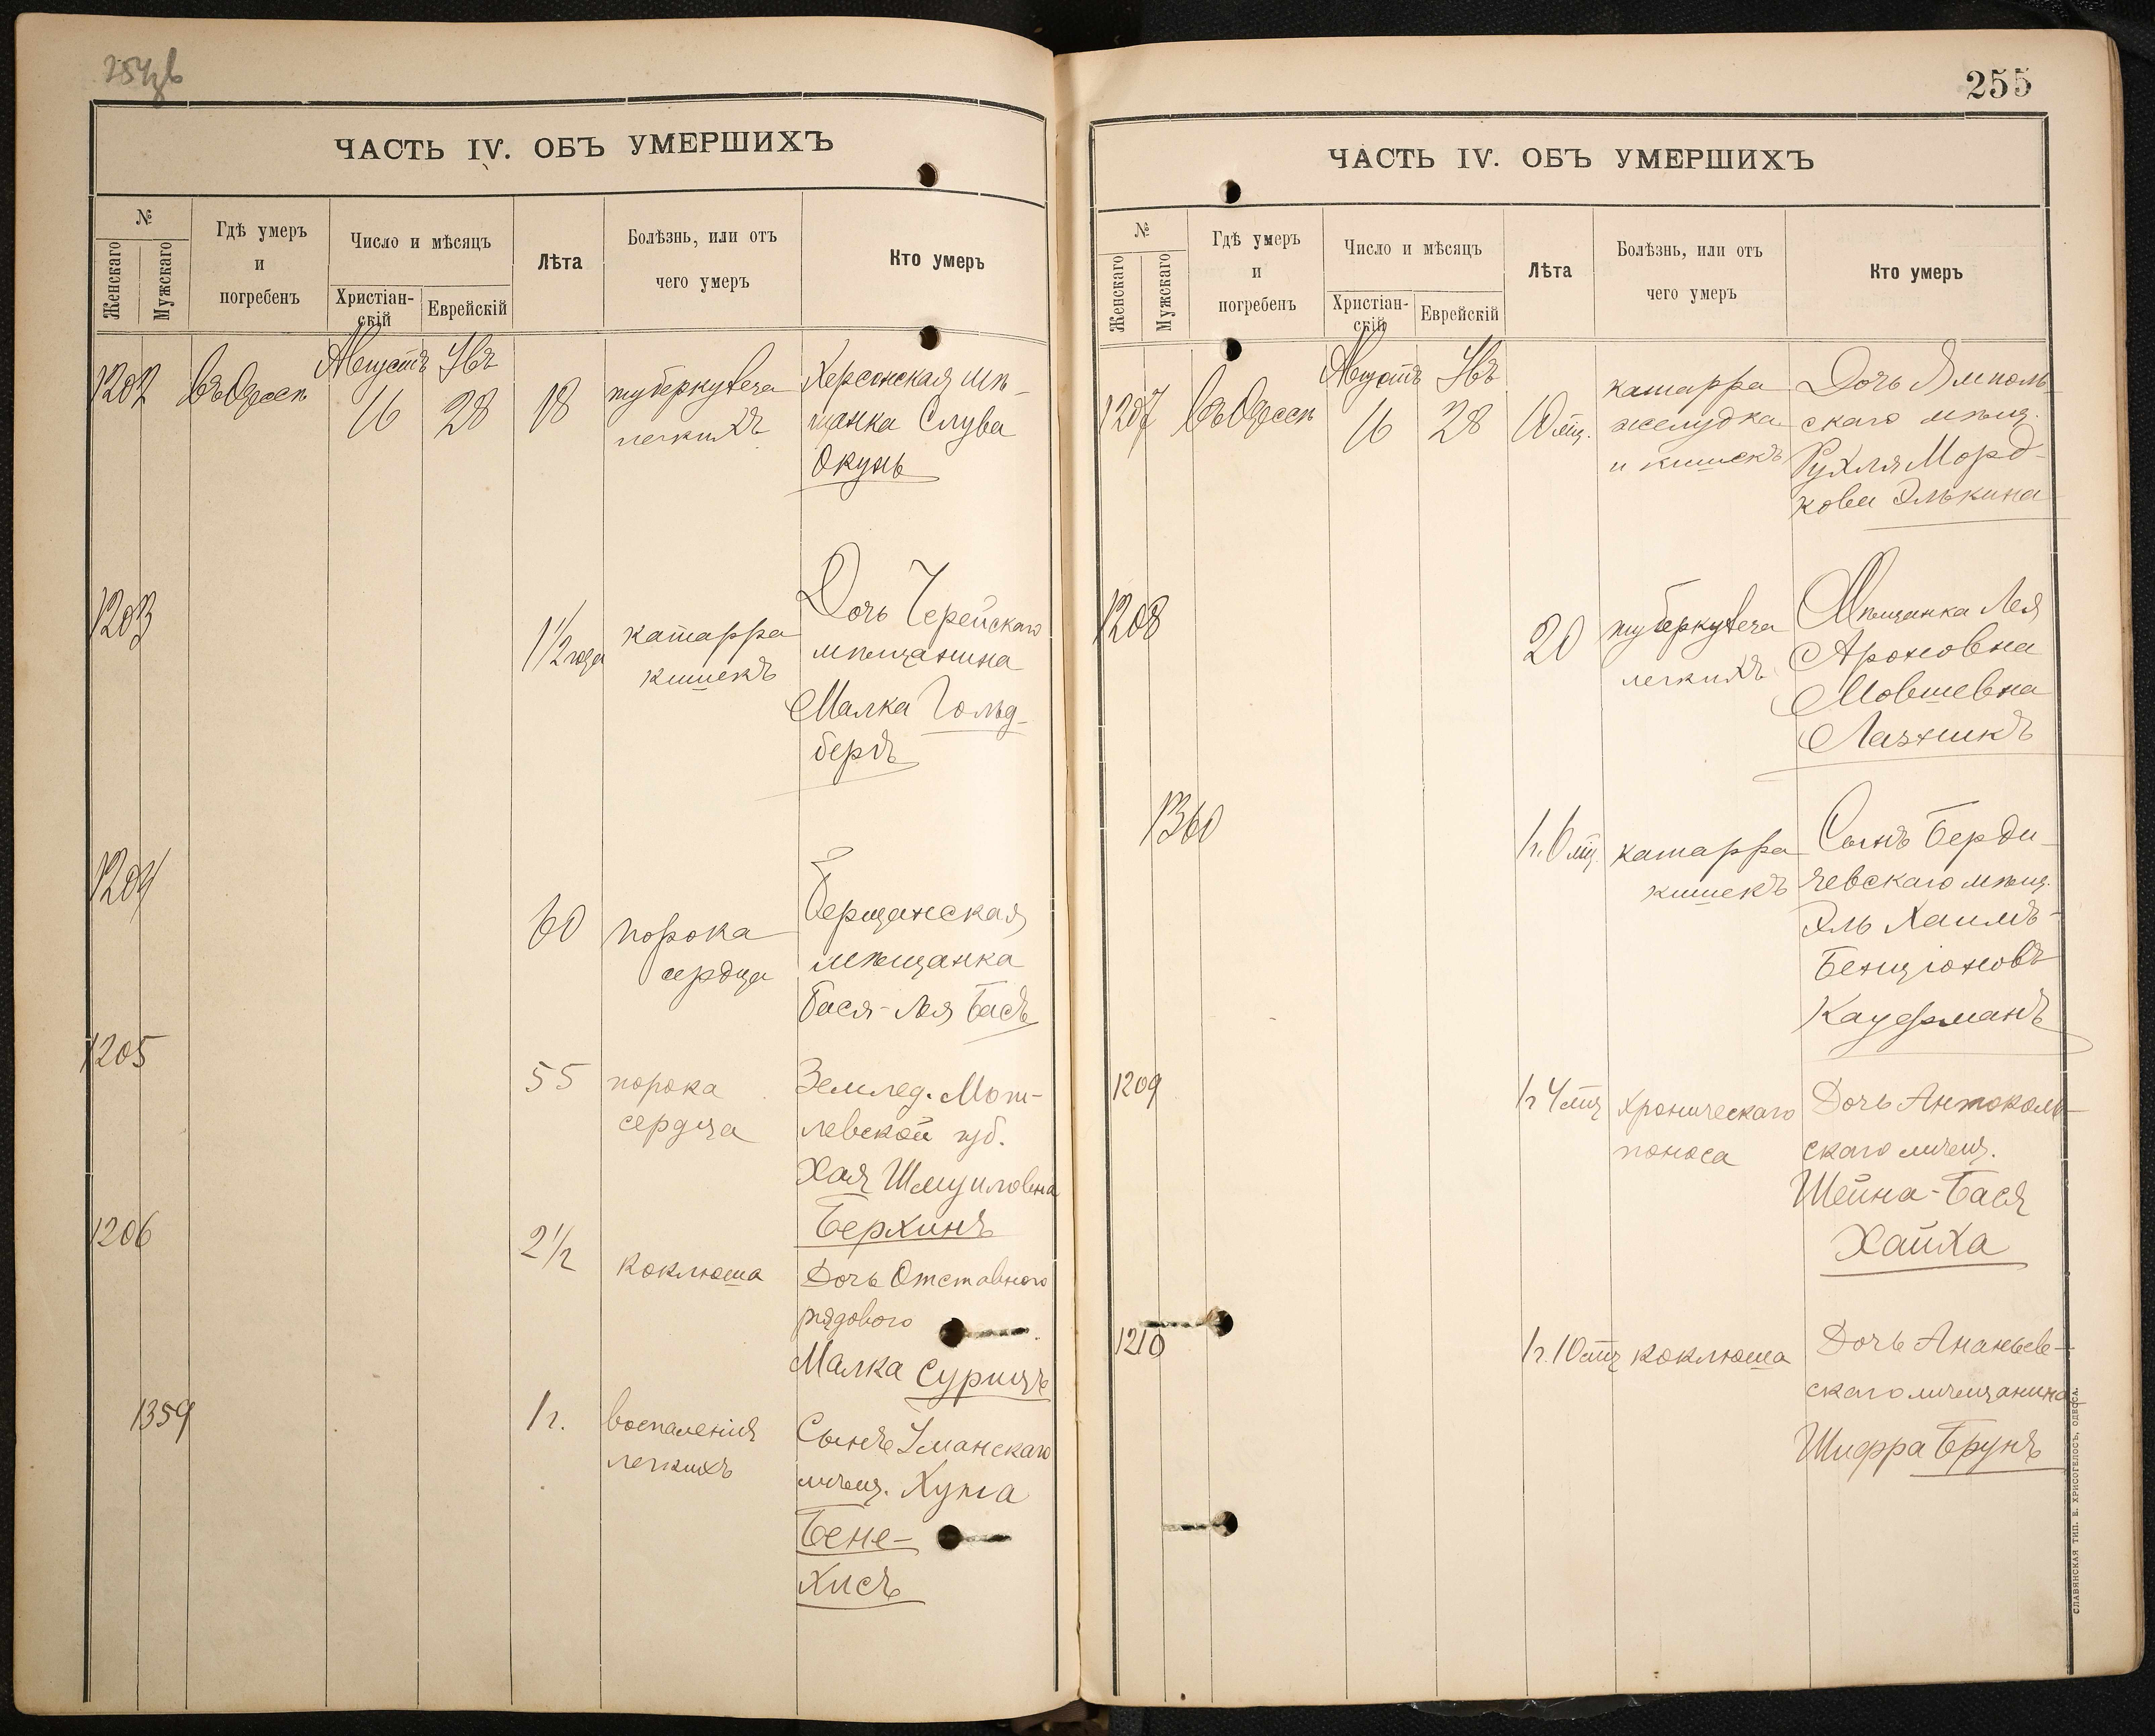 254 об
ЧАСТЬ IV. ОБЪ УМЕРШИХЪ
№
Женскаго
Мужскаго
Гдѣ умеръ
и
погребенъ
Число и мѣсяцъ
Христіан-
скій
Еврейскій
Лѣта
Болѣзнь, или отъ
чего умеръ
Кто умеръ
1202
въ Одессѣ
Августъ
16
Увъ
28
18
туберкулеза
легкихъ
Херсонская мѣ-
щанка Слува
Окунь
1203
1 1/2 года
катарра
кишекъ
Дочь Черейскаго
мѣщанина
Малка Гольд-
бергъ
1204
60
порока
сердца
Берщанская
мѣщанка
Бася-Лея Басъ
1205
55
порока
сердца
Землед. Моги-
левской губ.
Хая Шмуиловна
Берхинъ
1206
2 1/2
коклюша
Дочь Отставного
рядового
Малка Сурицъ
1359
1 г.
воспаленія
легкихъ
Сынъ Уманскаго
мѣщ. Хуна
Бене-
хисъ
255
ЧАСТЬ IV. ОБЪ УМЕРШИХЪ
№
Женскаго
Мужскаго
Гдѣ умеръ
и
погребенъ
Число и мѣсяцъ
Христіан-
скій
Еврейскій
Лѣта
Болѣзнь, или отъ
чего умеръ
Кто умеръ
1207
въ Одессѣ
Августъ
16
Увъ
28
10 мц.
катарра
желудка
и кишекъ
Дочь Ямполь-
скаго мѣщ.
Рухля Морд-
кови Элькина
1208
20
туберкулеза
легкихъ
Мѣщанка Лея
Ароновна
Мовшевна
Лазникъ
1360
1 г. 6 мц.
катарра
кишекъ
Сынъ Берди-
чевскаго мѣщ.
Эль Хаимъ-
Бенціоновъ
Кауфманъ
1209
1 г 4 мц
хроническаго
поноса
Дочь Антоколь-
скаго мѣщ.
Шейна-Бася
Хайха
1210
1 г. 10 мц
коклюша
Дочь Ананьев-
скаго мѣщанина
Шифра Брунъ
СЛАВЯНСКАЯ ТИП. Е. ХРИСОГЕЛОСЪ, ОДЕССА.